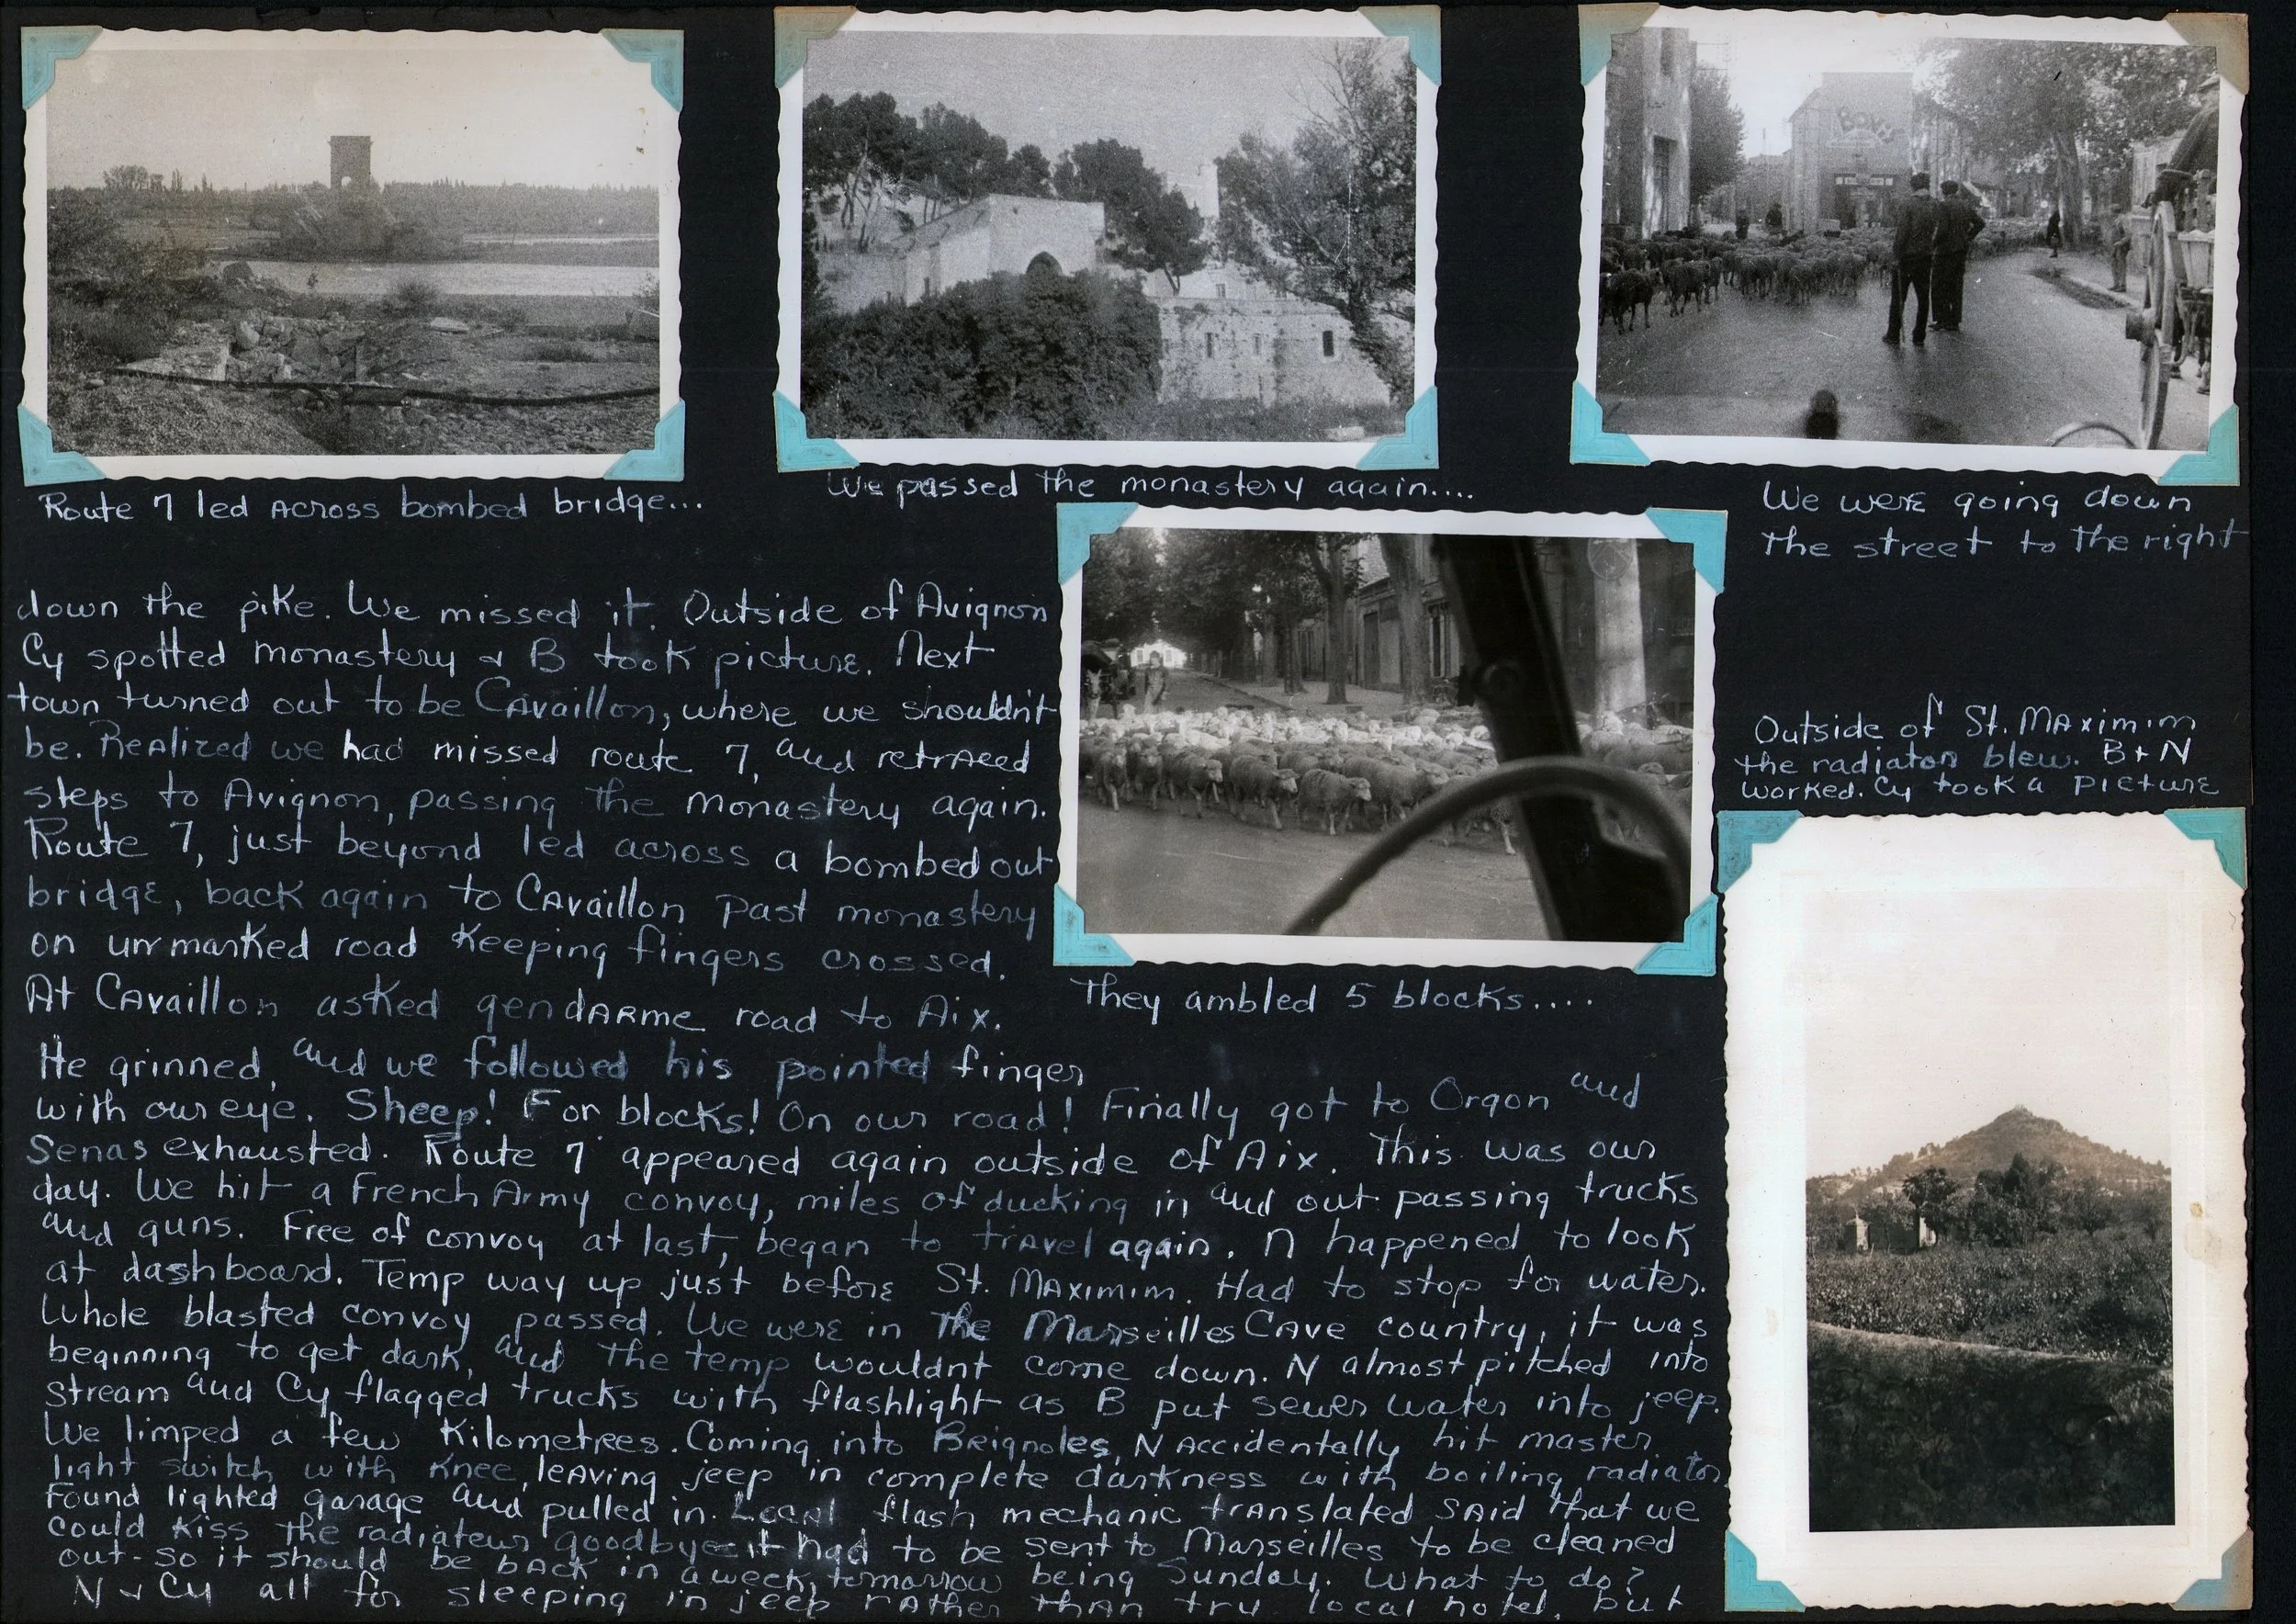 Route 7 led across bombed bridge...
We passed the monastery again....
We were going down
the street to the right
down the pike. We missed it. Outside of Avignon
Cy spotted monastery & B took picture. Next
town turned out to be Cavaillon, where we shouldn't
be. Realized we had missed route 7, and retraced
steps to Avignon, passing the monastery again.
Route 7, just beyond led across a bombed out
bridge, back again to Cavaillon past monastery
on unmarked road keeping fingers crossed.
At Cavaillon asked gendarme road to Aix.
He grinned, and we followed his pointed finger
with our eye. Sheep! For blocks! On our road! Finally got to Orgon and
Senas exhausted. Route 7 appeared again outside of Aix. This was our
day. We hit a French Army convoy, miles of ducking in and out passing trucks
and guns. Free of convoy at last, began to travel again. N happened to look
at dashboard. Temp way up just before St. Maximim. Had to stop for water.
Whole blasted convoy passed. We were in the Marseilles Cave country, it was
beginning to get dark, and the temp wouldnt come down. N almost pitched into
stream and Cy flagged trucks with flashlight as B put sewer water into jeep.
We limped a few Kilometres. Coming into Brignoles, N accidentally hit master
light switch with knee, leaving jeep in complete darkness with boiling radiator.
Found lighted garage and pulled in. Local flash mechanic translated said that we
could kiss the radiateur goodbye it had to be sent to Marseilles to be cleaned
out - so it should be back in a week, tomorrow being Sunday. What to do?
N & Cy all for sleeping in jeep rather than try local hotel, but
They ambled 5 blocks....
Outside of St. Maximim
the radiator blew. B & N
worked. Cy took a picture